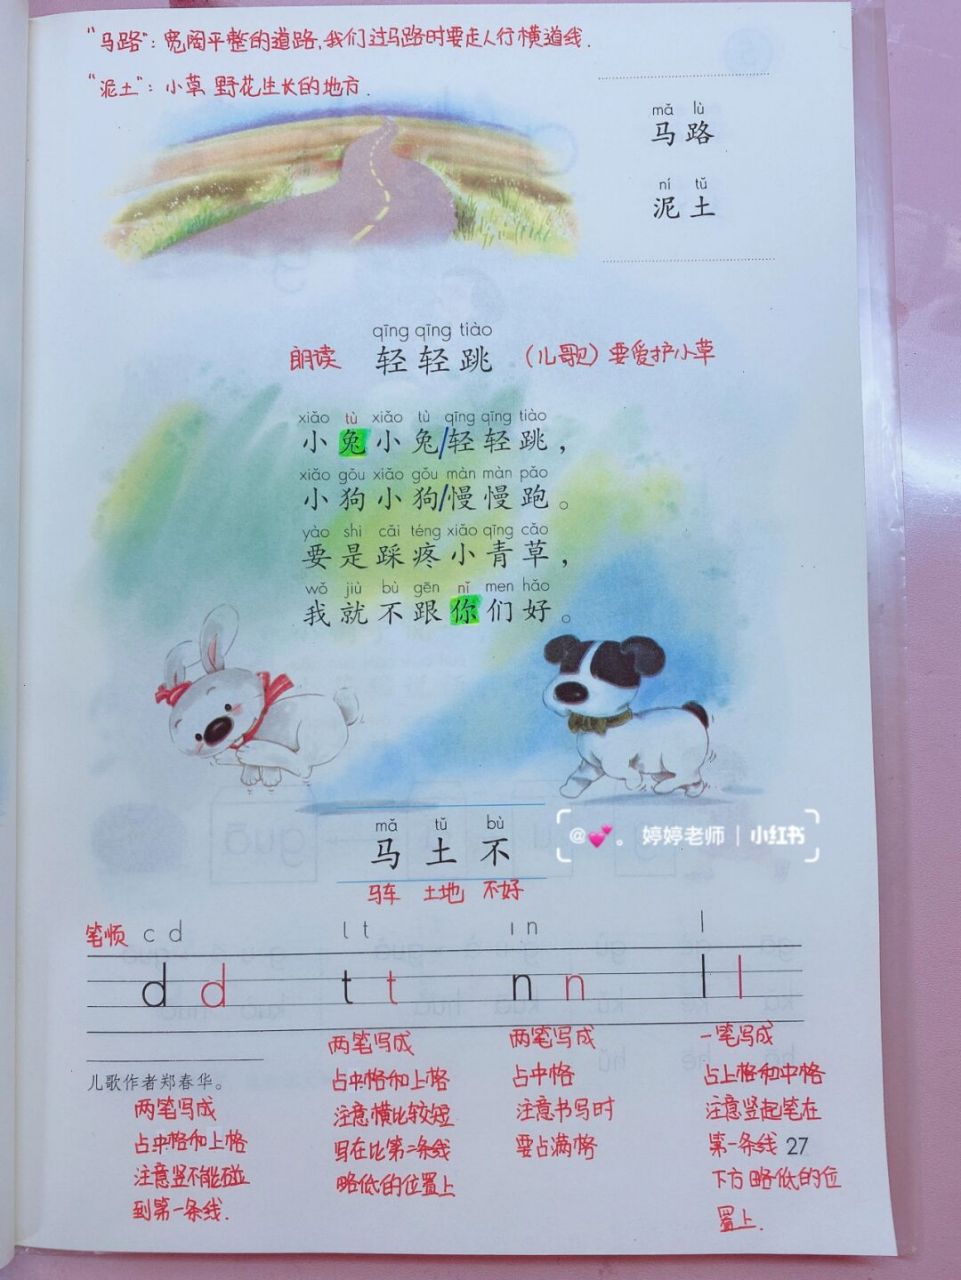 “马路”：宽阔平整的道路,我们过马路时要走人行横道线.
“泥土”：小草、野花生长的地方.
mǎ lù
马路
ní tǔ
泥土
qīng qīng tiào
朗读 轻轻跳 （儿歌）要爱护小草
xiǎo tù xiǎo tù qīng qīng tiào
小兔小兔/轻轻跳，
xiǎo gǒu xiǎo gǒu màn màn pǎo
小狗小狗/慢慢跑。
yào shi cǎi téng xiǎo qīng cǎo
要是踩疼小青草，
wǒ jiù bù gēn nǐ men hǎo
我就不跟你们好。
mǎ tǔ bù
马土不
@💕。婷婷老师｜小红书
马车 土地 不好
笔顺 c d l t ı n l
d d t t n n l l
儿歌作者郑春华。
两笔写成
占中格和上格
注意竖不能碰
到第一条线.
两笔写成
占中格和上格
注意横比较短
写在比第二条线
略低的位置上
两笔写成
占中格
注意书写时
要占满格
一笔写成
占上格和中格
注意竖起笔在
第一条线
下方略低的位
置上.
27